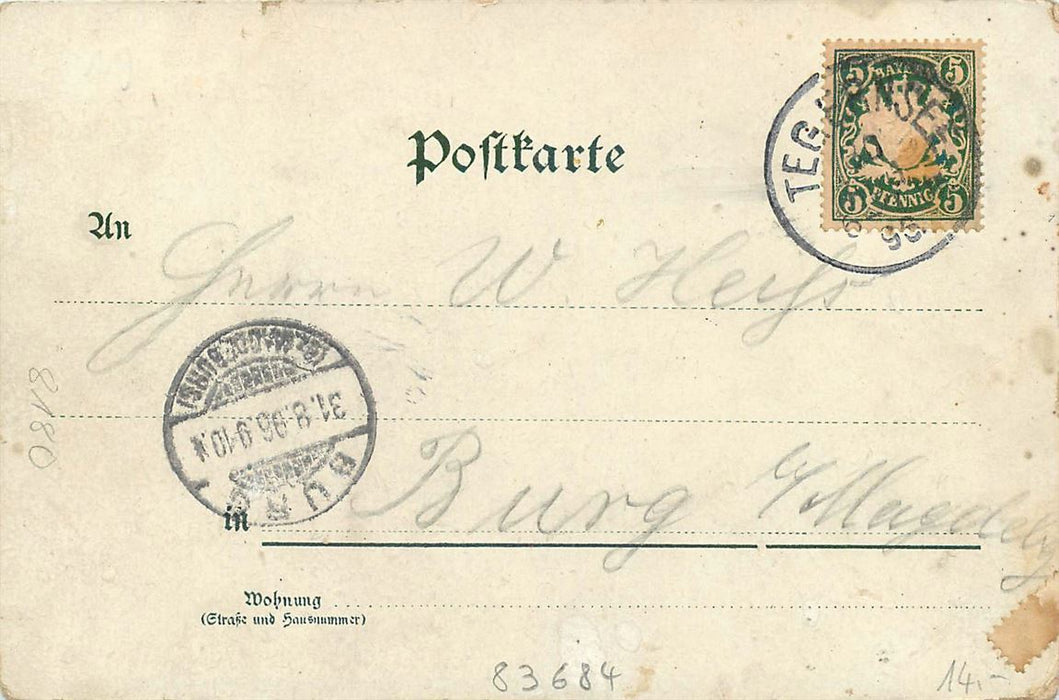 Postkarte
5 BAYERN 5
5 PFENNIG 5
TEGERNSEE
An
Herrn W. Heiss
(BZ. MAGDEBURG)
31.8.96.9-10.V
BURG
0818
in Burg b/Magdebg
Wohnung
(Straße und Hausnummer)
83684
14.-